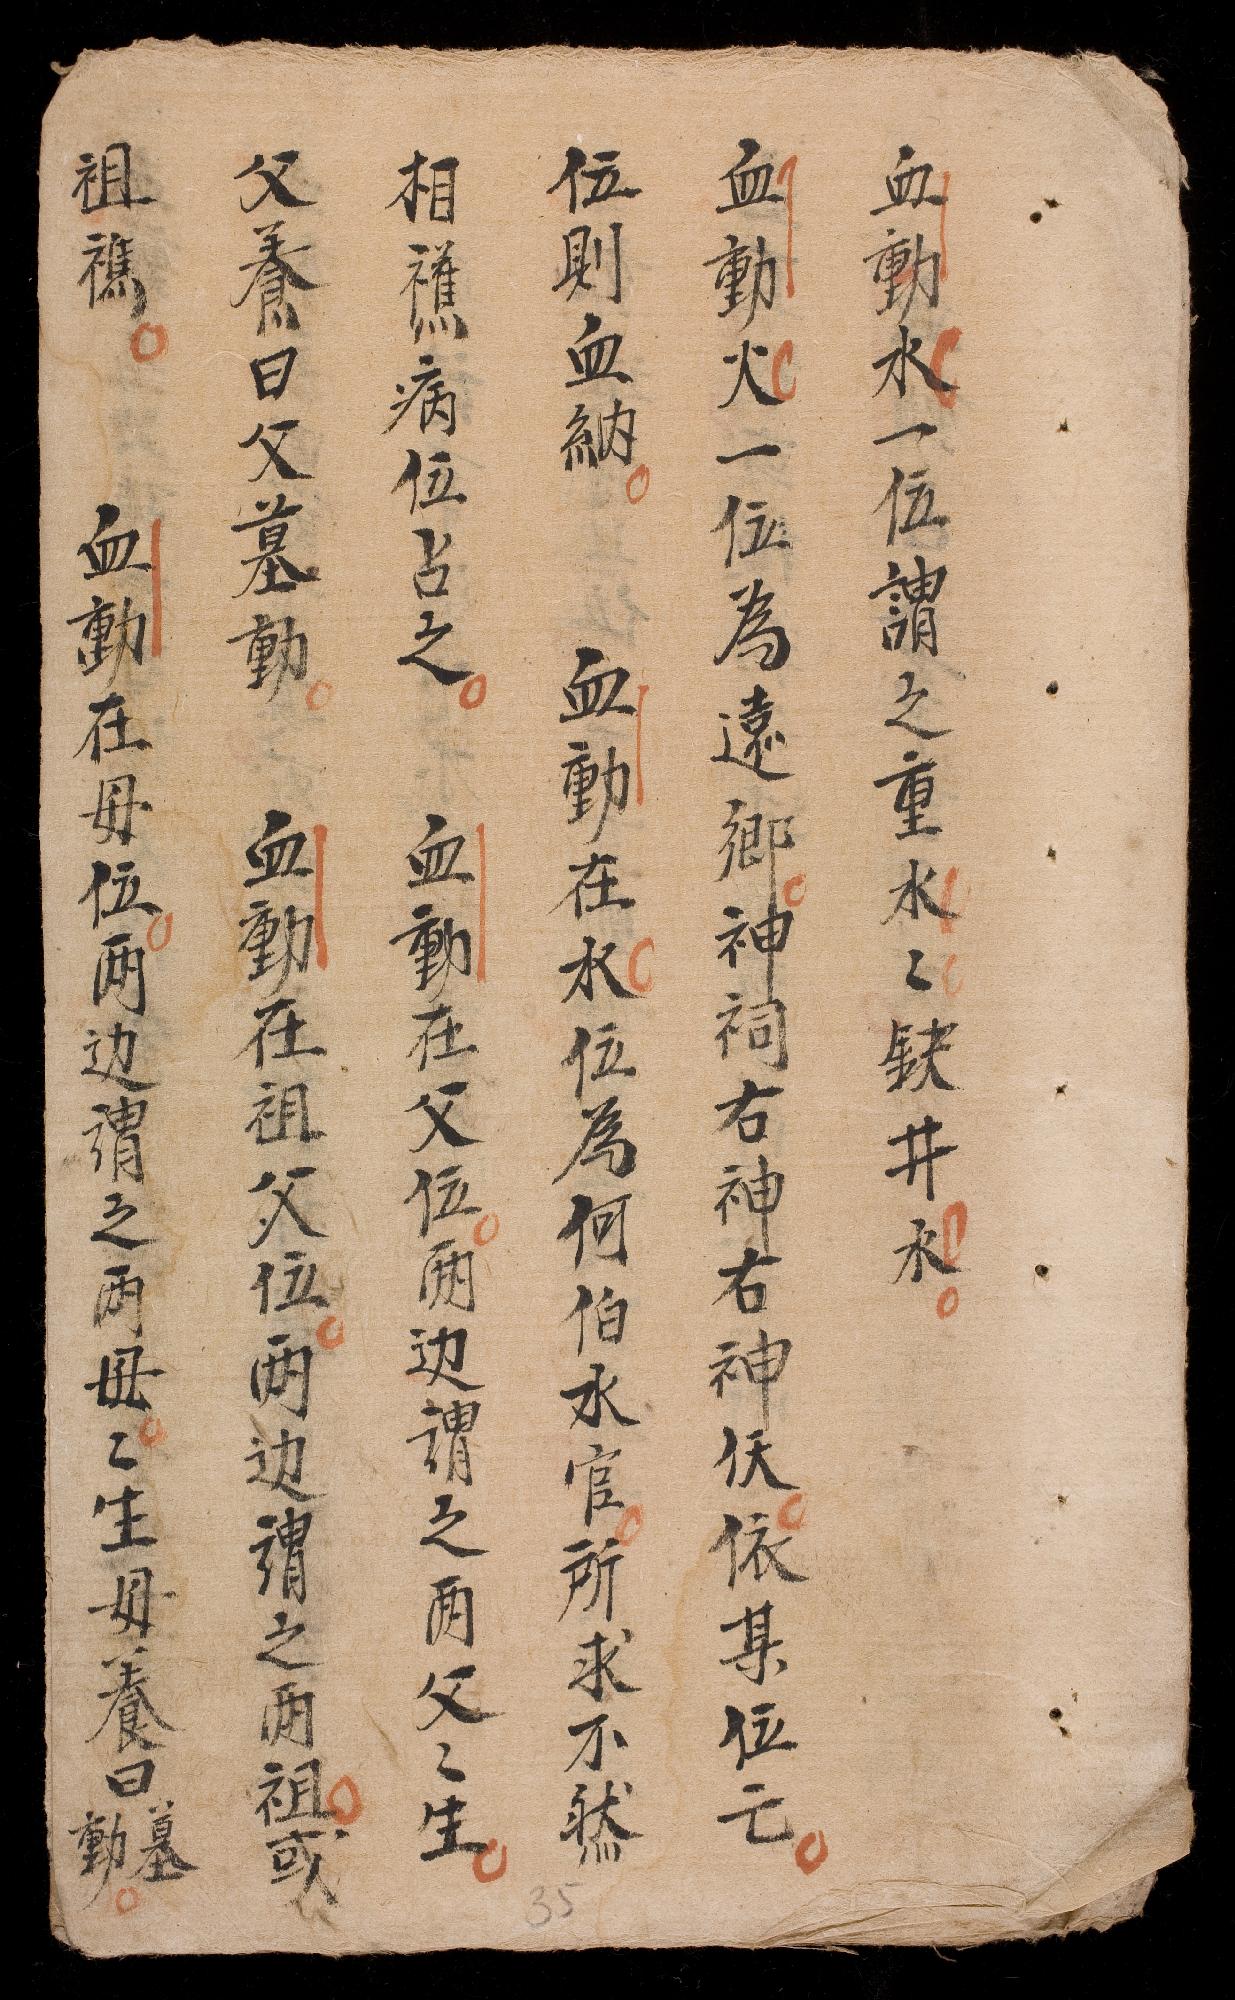 血動水一位謂之重水〻缺井水
血動火一位為遠鄉神祠右神右神伏依某位亡
位則血納　血動在水位為何伯水官所求不然
相醮病位占之　血動在父位両边謂之両父〻生
父養曰父墓動　血動在祖父位両边謂之両祖或
祖醮　血動在母位両边謂之両母〻生母養曰墓動
35